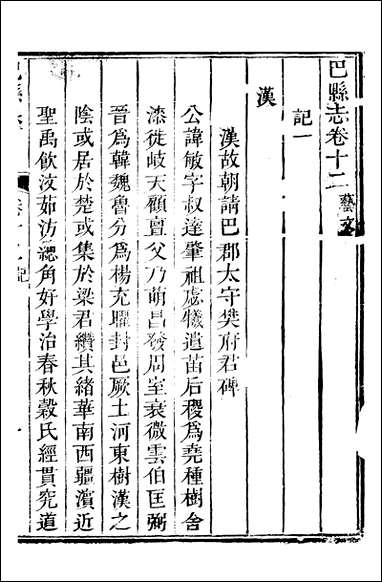 巴縣志卷十二 藝文
記一
漢
漢故朝請巴郡太守樊府君碑
公諱敏字叔達肇祖虙犧遺苗后稷爲堯種樹舍
漆徙岐天顧亶父乃萌昌發周室衰微霸伯匡弼
晉爲韓魏魯分爲楊充曜封邑厥土河東樹漢之
陰或居於楚或集於梁君纘其緒華南西疆濱近
聖禹飲汶茹汸總角好學治春秋穀氏經貫究道